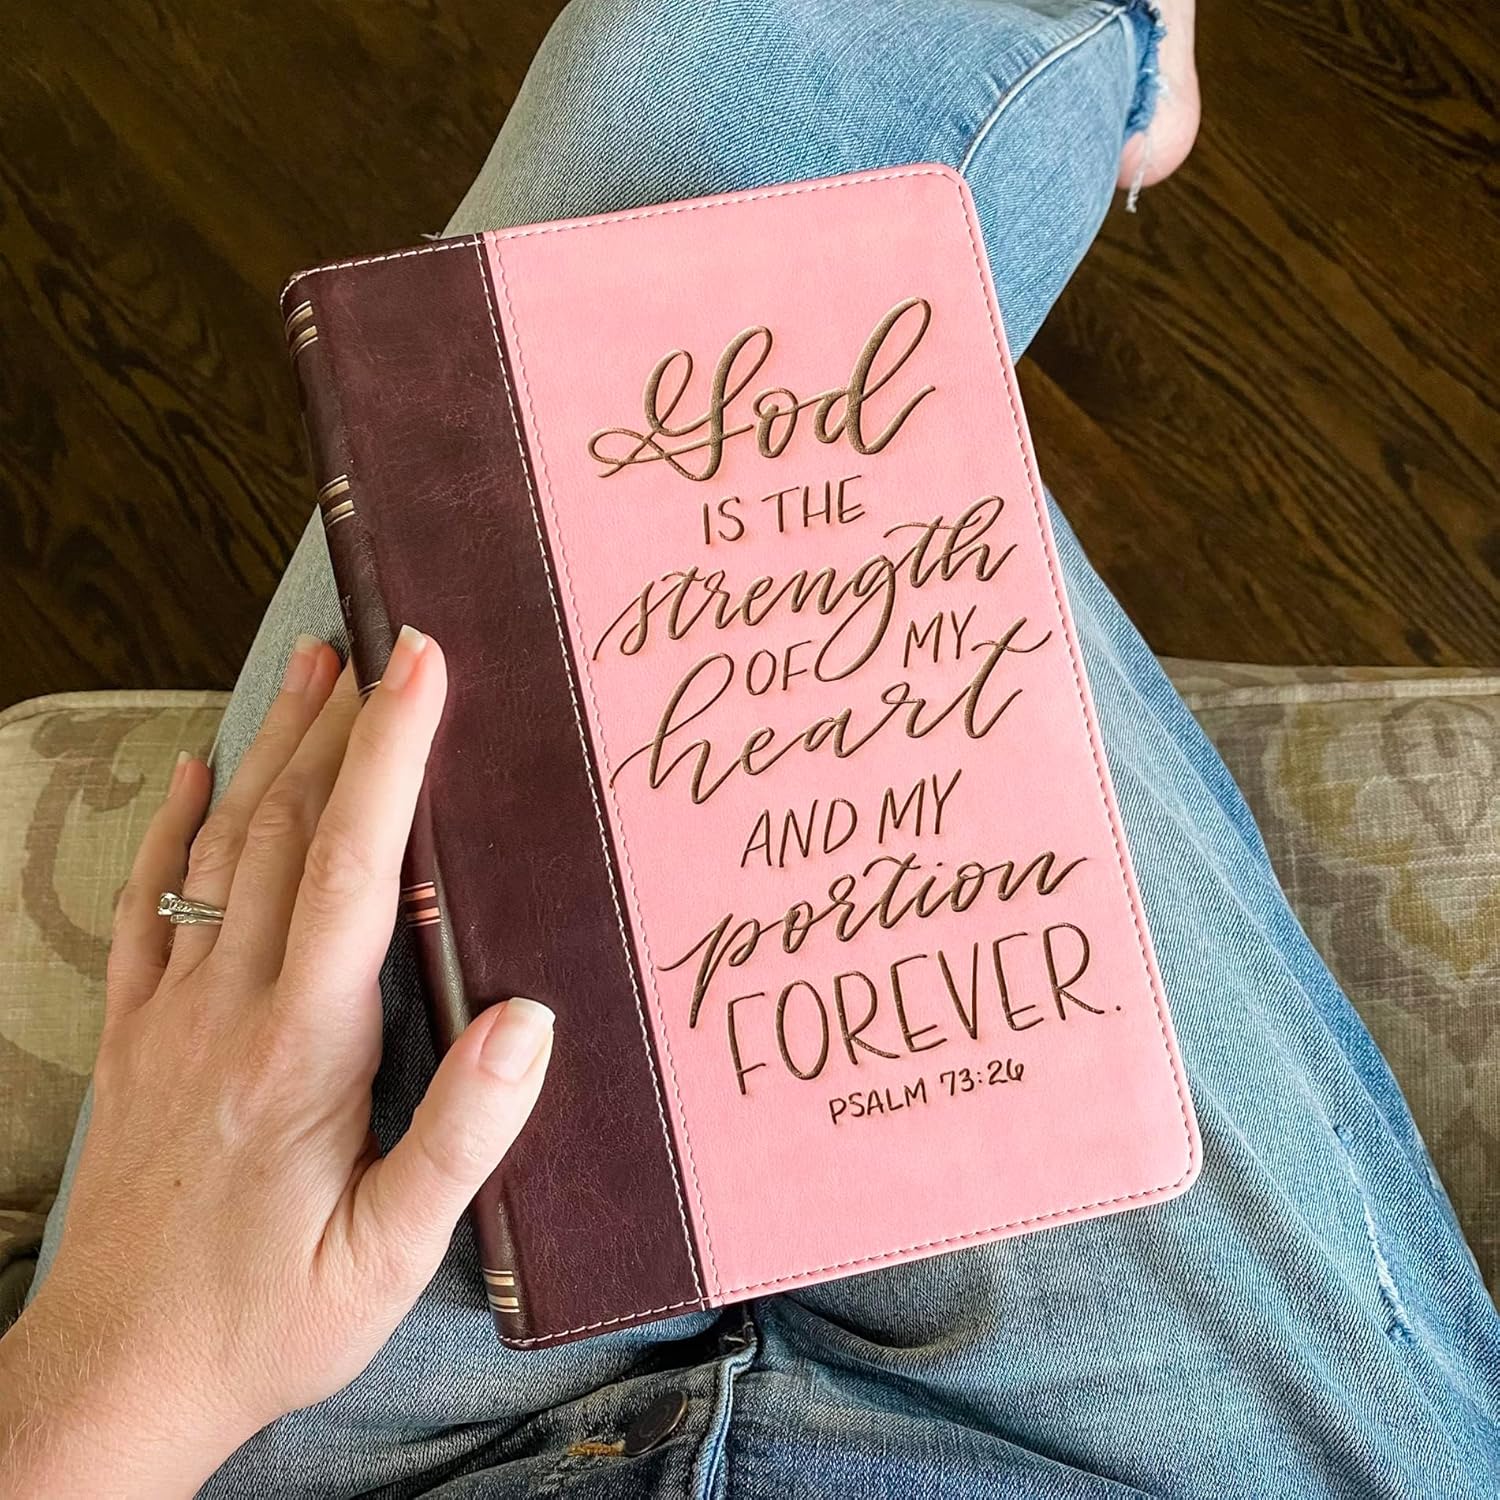 God
IS THE
strength
OF MY
heart
AND MY
portion
FOREVER.
PSALM 73:26